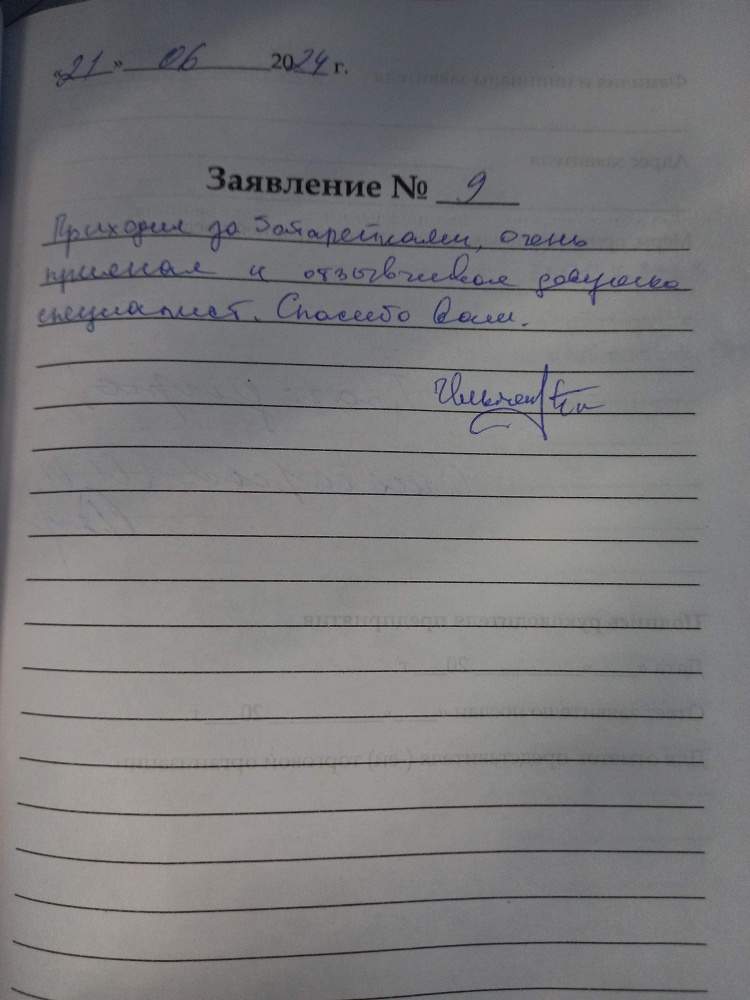 «21» 06 2024 г.
Заявление № 9
Приходил за батарейками, очень
приятная и отзывчивая девушка
специалист. Спасибо Вам.